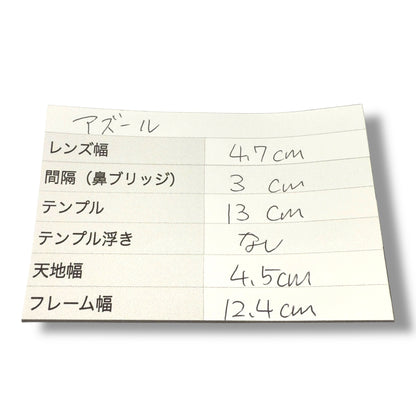 アズール
レンズ幅 4.7cm
間隔（鼻ブリッジ） 3 cm
テンプル 13 cm
テンプル浮き なし
天地幅 4.5cm
フレーム幅 12.4cm